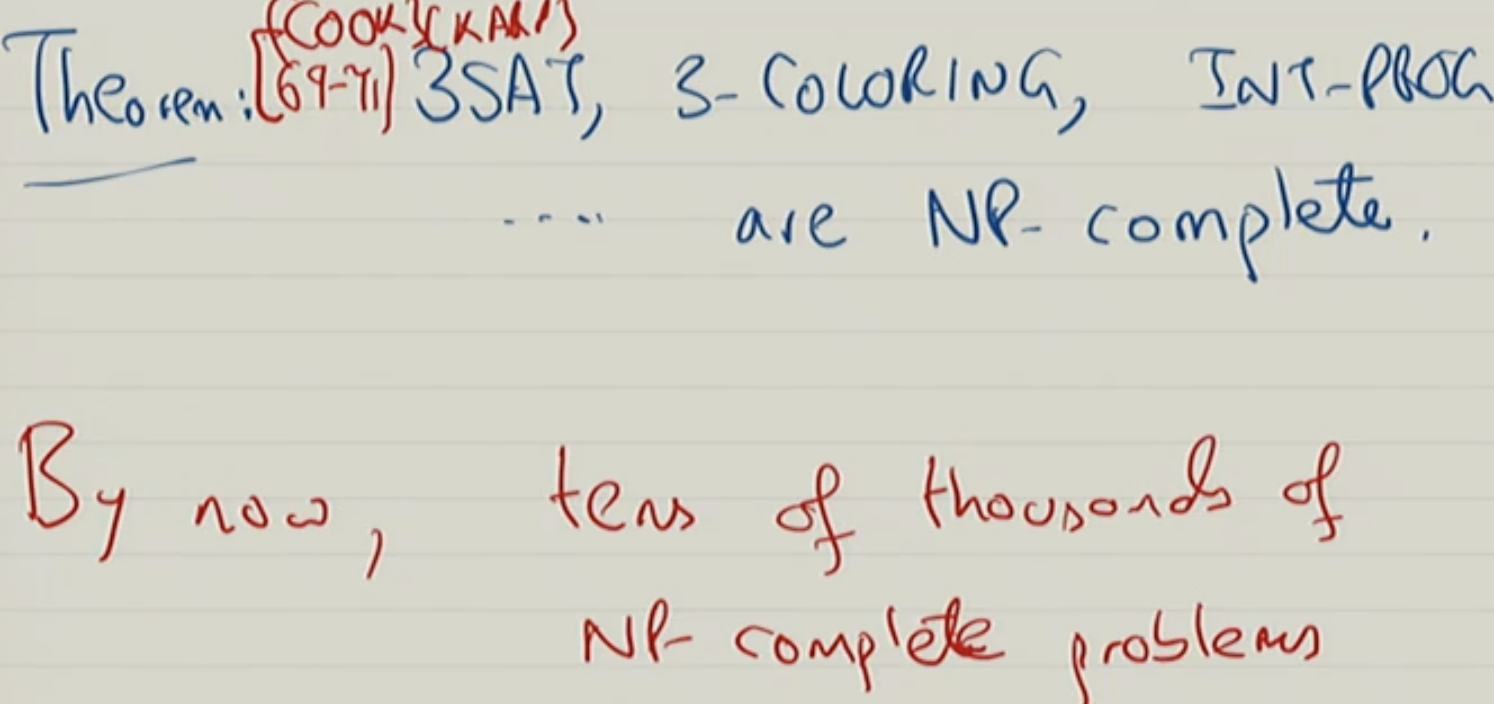 [COOK][KARP]
Theorem: [69-71] 3SAT, 3-COLORING, INT-PROG
..... are NP-complete.
By now, tens of thousands of
NP-complete problems